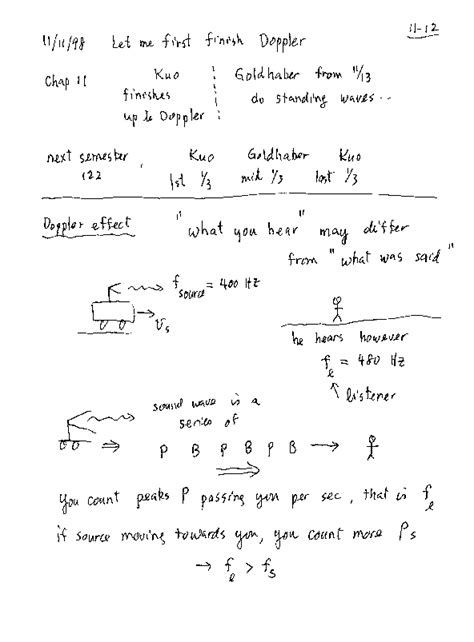 11-12
11/11/98 Let me first finish Doppler
Chap 11 Kuo finishes up to Doppler
Goldhaber from 11/13 do standing waves..
next semester, 122
Kuo 1st 1/3
Goldhaber mid 1/3
Kuo last 1/3
Doppler effect "what you hear" may differ
from "what was said"
f source = 400 Hz
Vs
he hears however
fl = 480 Hz
listener
sound wave is a
series of
P B P B P B
You count peaks P passing you per sec, that is fl
if source moving towards you, you count more Ps
→ fl > fs